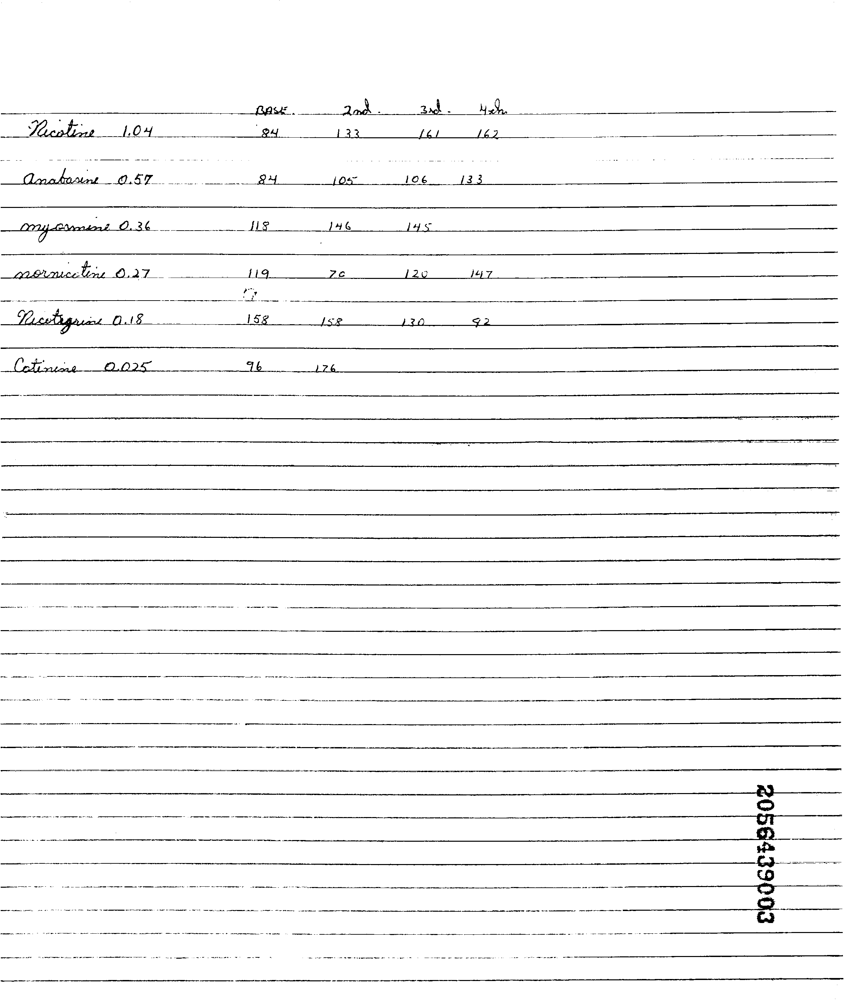 BASE. 2nd. 3rd. 4th
Nicotine 1.04 84 133 161 162
Anabasine 0.57 84 105 106 133
myosmine 0.36 118 146 145
nornicotine 0.27 119 70 120 147
Nicotyrine 0.18 158 158 130 92
Cotinine 0.025 96 176
2056439003